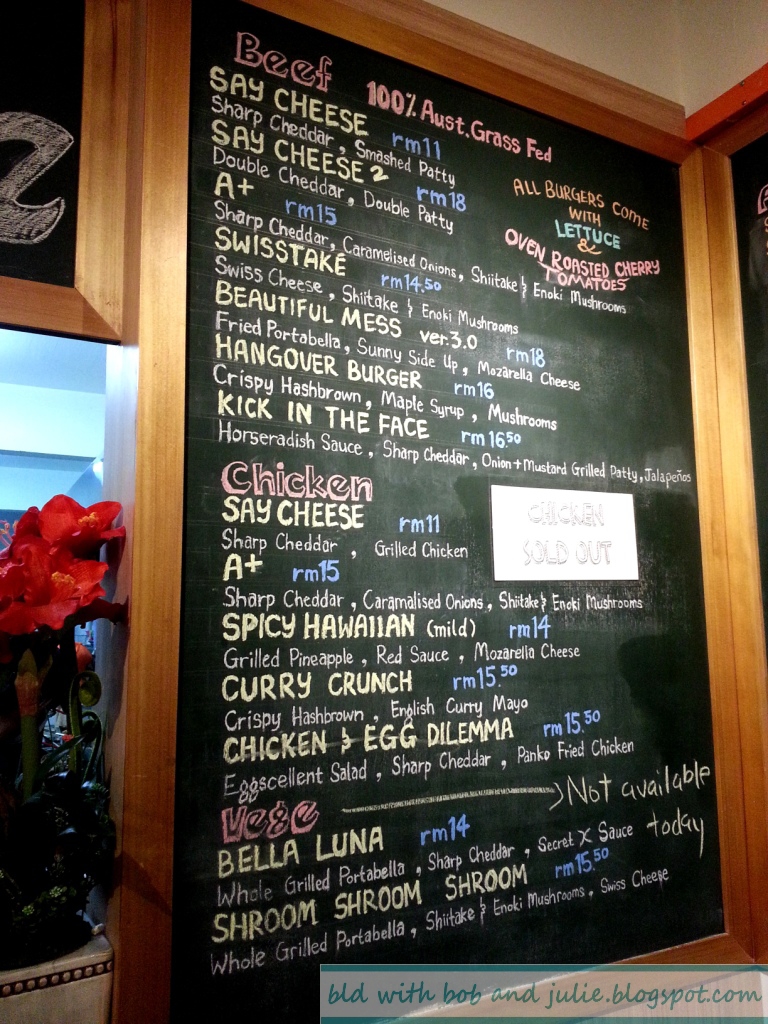 Beef 100% Aust. Grass Fed
SAY CHEESE rm11
Sharp Cheddar, Smashed Patty
SAY CHEESE 2 rm18
Double Cheddar, Double Patty
A+ rm15
Sharp Cheddar, Caramelised Onions, Shiitake & Enoki Mushrooms
SWISSTAKE rm14.50
Swiss Cheese, Shiitake & Enoki Mushrooms
BEAUTIFUL MESS ver.3.0 rm18
Fried Portabella, Sunny Side Up, Mozarella Cheese
HANGOVER BURGER rm16
Crispy Hashbrown, Maple Syrup, Mushrooms
KICK IN THE FACE rm16.50
Horseradish Sauce, Sharp Cheddar, Onion+Mustard Grilled Patty, Jalapeños
ALL BURGERS COME
WITH
LETTUCE
&
OVEN ROASTED CHERRY
TOMATOES
Chicken
SAY CHEESE rm11
Sharp Cheddar, Grilled Chicken
CHICKEN
SOLD OUT
A+ rm15
Sharp Cheddar, Caramalised Onions, Shiitake & Enoki Mushrooms
SPICY HAWAIIAN (mild) rm14
Grilled Pineapple, Red Sauce, Mozarella Cheese
CURRY CRUNCH rm15.50
Crispy Hashbrown, English Curry Mayo
CHICKEN & EGG DILEMMA rm15.50
Eggscellent Salad, Sharp Cheddar, Panko Fried Chicken
Vege Not available
today
BELLA LUNA rm14
Whole Grilled Portabella, Sharp Cheddar, Secret X Sauce
SHROOM SHROOM SHROOM rm15.50
Whole Grilled Portabella, Shiitake & Enoki Mushrooms, Swiss Cheese
bld with bob and julie.blogspot.com